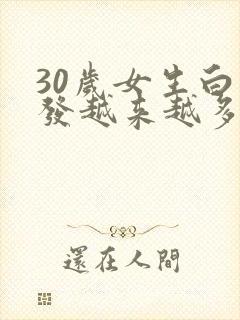 30歲女生白
發越來越多
還在人間